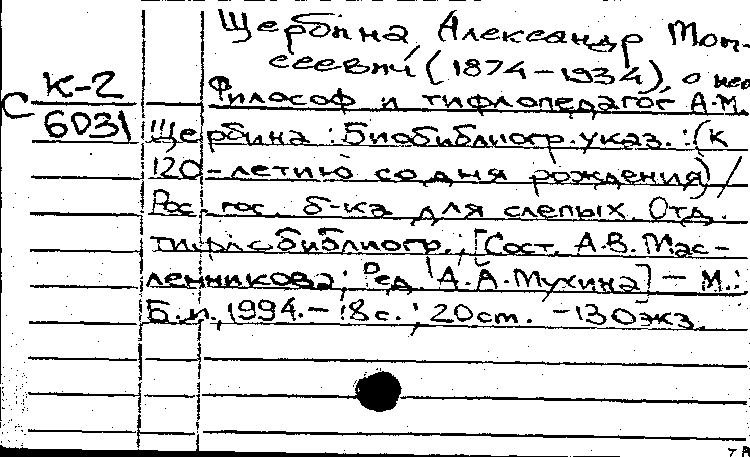 Щербина, Александр Мои-
сеевич (1874-1934), о нем
К-2
С
Философ и тифлопедагог А.М.
6031
Щербина : Биобиблиогр. указ. : (к
120-летию со дня рождения) /
Рос. гос. б-ка для слепых. Отд.
тифлобиблиогр. ; [Сост. А.В. Мас-
ленникова; Ред. А.А. Мухина] - М. :
Б.и., 1994. - 18 с. ; 20 см. - 130 экз.